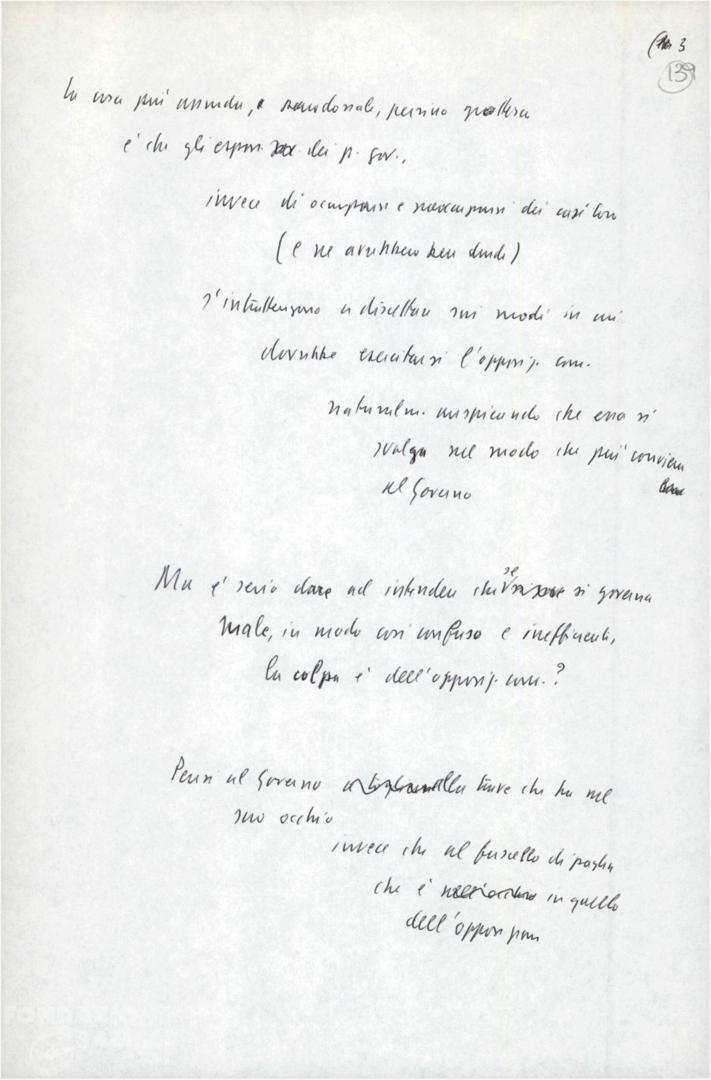 3
139
La cosa più assurda, e paradossale, persino grottesca
è che gli espon. dei p. gov.,
invece di occuparsi e preoccuparsi dei casi loro
(e ne avrebbero ben donde)
s'intrattengono a disettare sui modi in cui
dovrebbe esercitarsi l'opposiz. com.
naturalm. auspicando che essa si
svolga nel modo che più conviene
al Governo
Ma è serio dare ad intendere che se si governa
male, in modo così confuso e inefficiente,
la colpa è dell'opposiz. com.?
Pensi il Governo alla trave che ha nel
suo occhio
invece che al fuscello di paglia
che è in quello
dell'opposizione